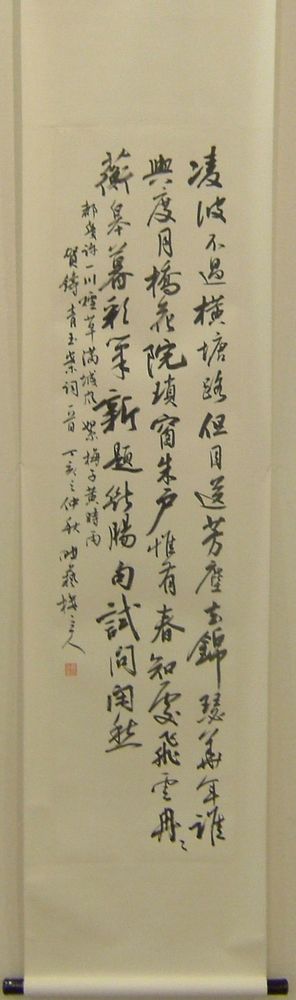 凌波不過橫塘路但目送芳塵去錦瑟華年誰
與度月橋花院瑣窗朱戶惟有春知處飛雲冉々
蘅皋暮彩筆新題斷腸句試問閑愁
都幾許一川煙草滿城風絮梅子黃時雨
賀鑄青玉案詞一首 丁亥之仲秋 藝樓主人